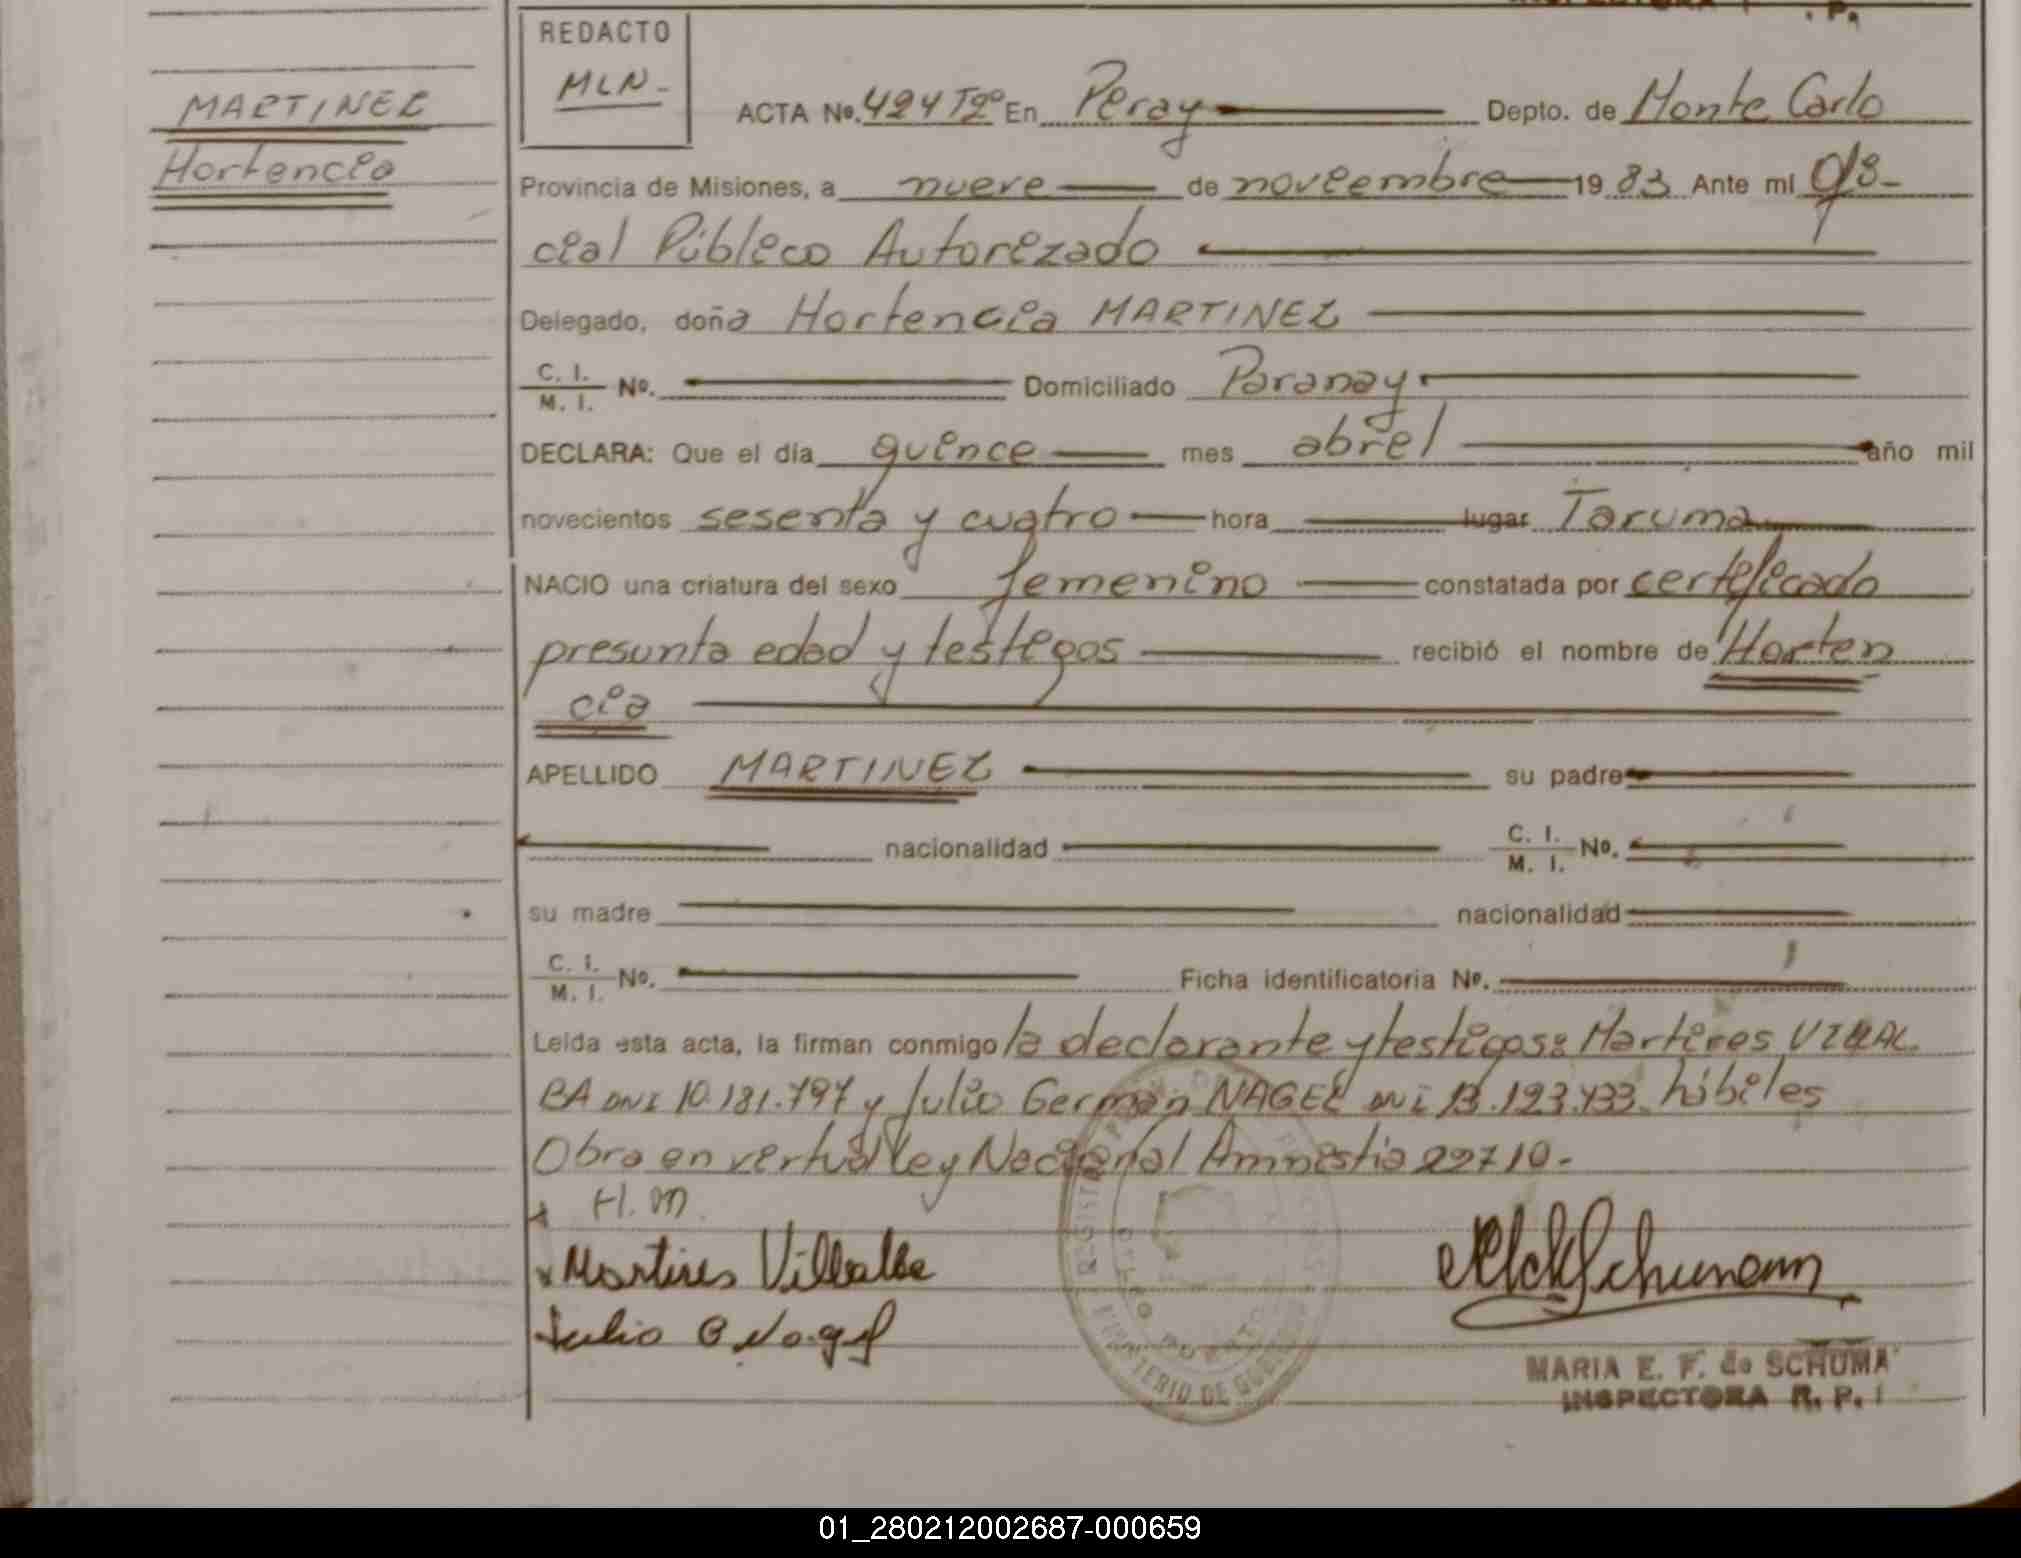 REDACTO
MLN-
MARTINEZ
Hortencia
ACTA Nº. 424 Tº2º En Peray Depto. de Monte Carlo
Provincia de Misiones, a nueve de noviembre 19 83 Ante mi Ofi-
cial Público Autorizado
Delegado, doña Hortencia MARTINEZ
C. I. / M. I. Nº. Domiciliado Paranay
DECLARA: Que el día quince mes abril año mil
novecientos sesenta y cuatro hora lugar Taruma
NACIO una criatura del sexo femenino constatada por certificado
presunta edad y testigos recibió el nombre de Horten
cia
APELLIDO MARTINEZ su padre
nacionalidad C. I. / M. I. Nº.
su madre nacionalidad
C. I. / M. I. Nº. Ficha identificatoria Nº.
Leída esta acta, la firman conmigo la declarante y testigos: Martires VILLAL
BA DNI 10.181.797 y Julio Germán NAGEL DNI 13.123.433 hábiles
Obra en virtud ley Nacional Amnistia 22710.-
H. M.
Martires Villalba
Julio G Nagel
Schumann
MARIA E. F. de SCHUMA
INSPECTORA R. P.
01_280212002687-000659